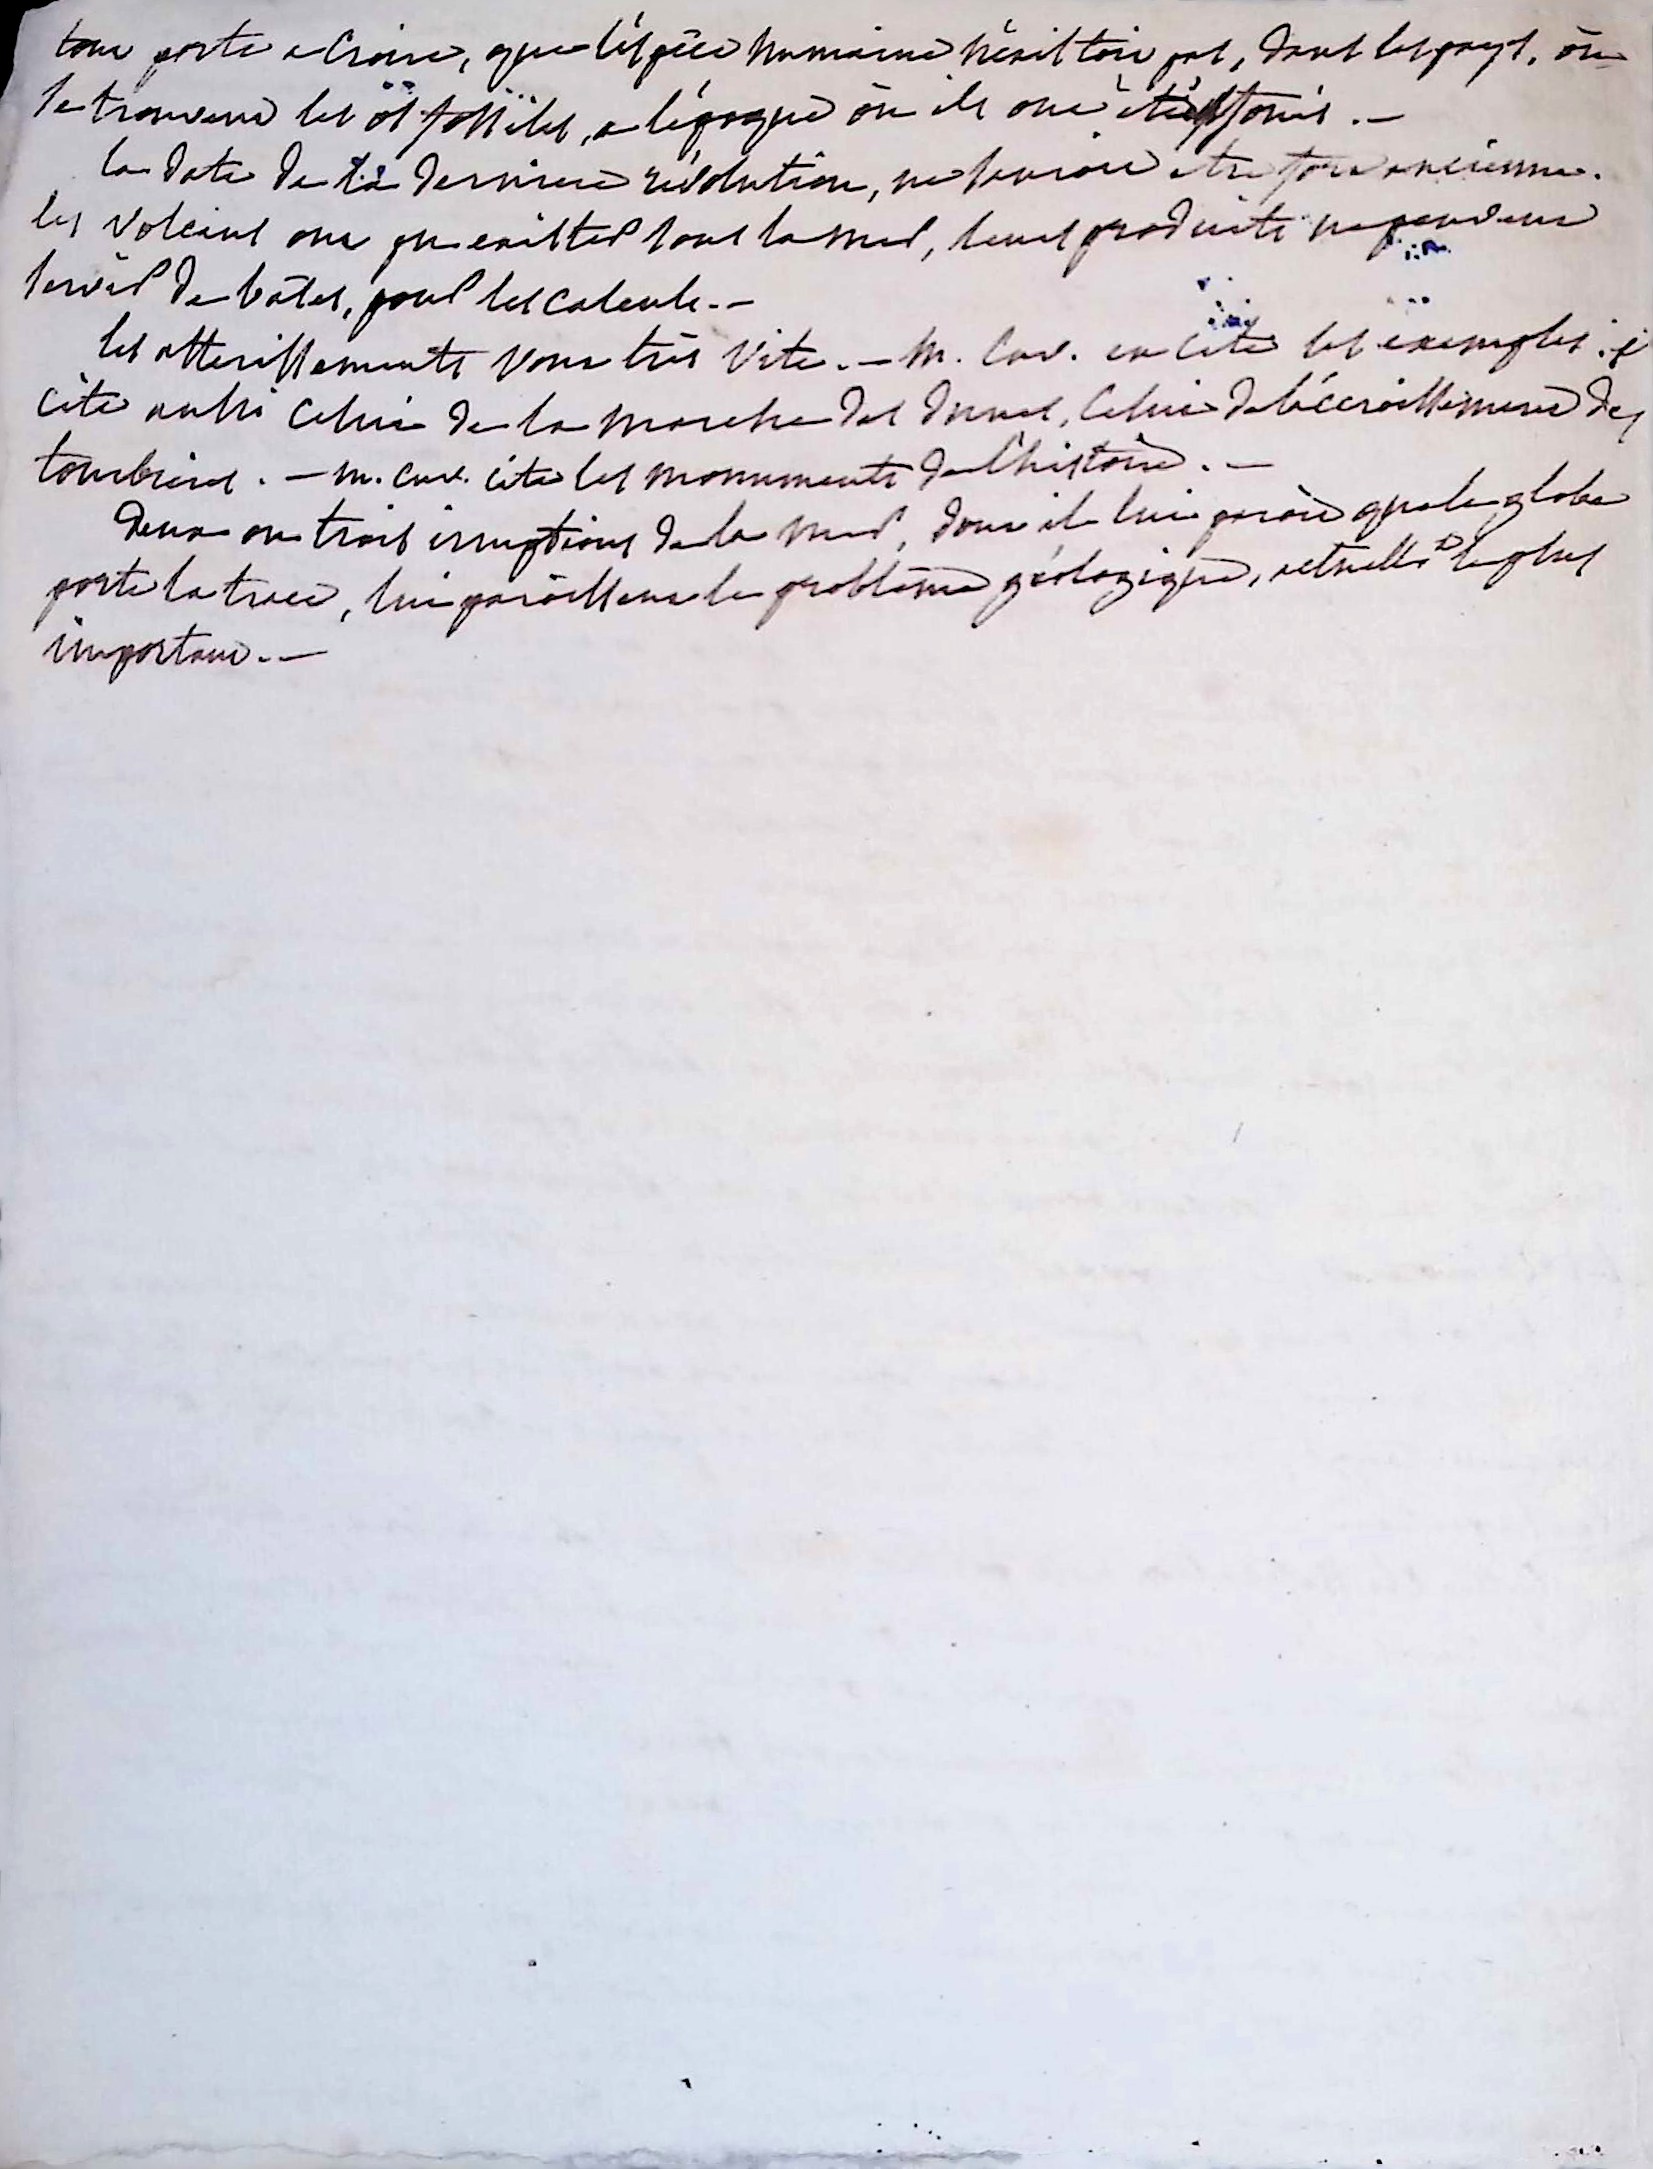 tout porte a croire, que l'éspéce humaine n'éxistoit pas, dans les pays, où
se trouvent les os fossiles, a l'époque où ils ont été enfouis. –
la date de la derniere révolution, ne sauroit etre fort ancienne.
les volcans ont pu exister sous la mer, leurs produits ne peuvent
servir de bâses, pour les calculs. –
les atterissements vont très vite. – M. Cuv. en cite les exemples. il
cite aussi celui de la marche des dunes, celui de l'accroissement des
tourbieres. – M. Cuv. cite les monuments de l'histoire. –
deux ou trois irruptions de la mer, dont il lui paroit que le globe
porte la trace, lui paroissent le problème géologique, actuellt le plus
important. –